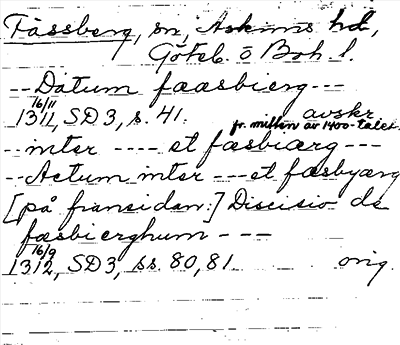 Fässberg, sn, Askims hd,
Göteb. o Boh. l.
-- Datum fæasbierg ---
16/11
1311, SD3, s. 41. avskr.
fr. mitten av 1400-talet.
-- inter ---- et fæsbiærg ---
-- Actum inter --- et fæsbyærg
[på fransidan:] Discisio de
fæsbierghum ---
16/9
1312, SD3, ss. 80, 81. orig.